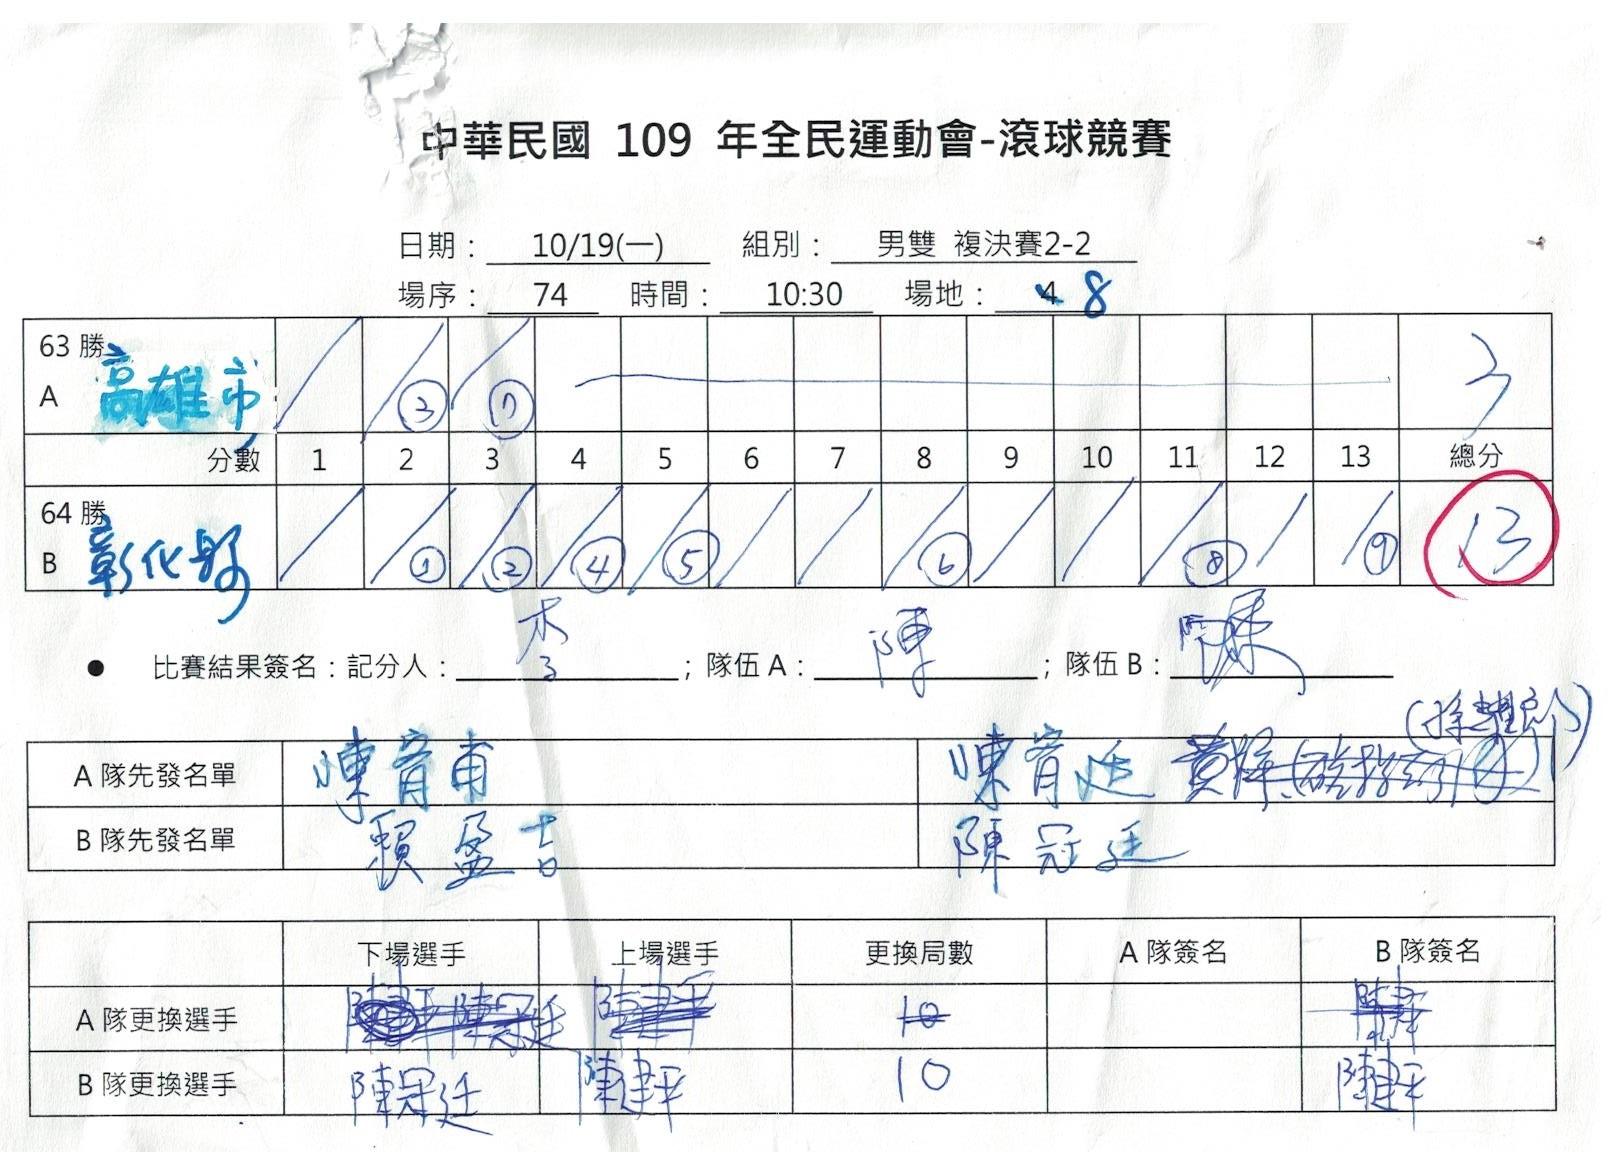 中華民國 109 年全民運動會-滾球競賽
日期： 10/19(一) 組別： 男雙 複決賽2-2
場序： 74 時間： 10:30 場地： 4 8
63 勝
A 高雄市 ③ 3
分數 1 2 3 4 5 6 7 8 9 10 11 12 13 總分
64 勝
B 彰化縣 ① ② ④ ⑤ ⑥ ⑧ ⑨ 13
● 比賽結果簽名：記分人： 李 ；隊伍 A： 陳 ；隊伍 B：
A 隊先發名單 陳育甫 陳育廷
B 隊先發名單 賴盈吉 陳冠廷
下場選手 上場選手 更換局數 A 隊簽名 B 隊簽名
A 隊更換選手 陳冠廷 陳建平 10
B 隊更換選手 陳冠廷 陳建平 10 陳建平